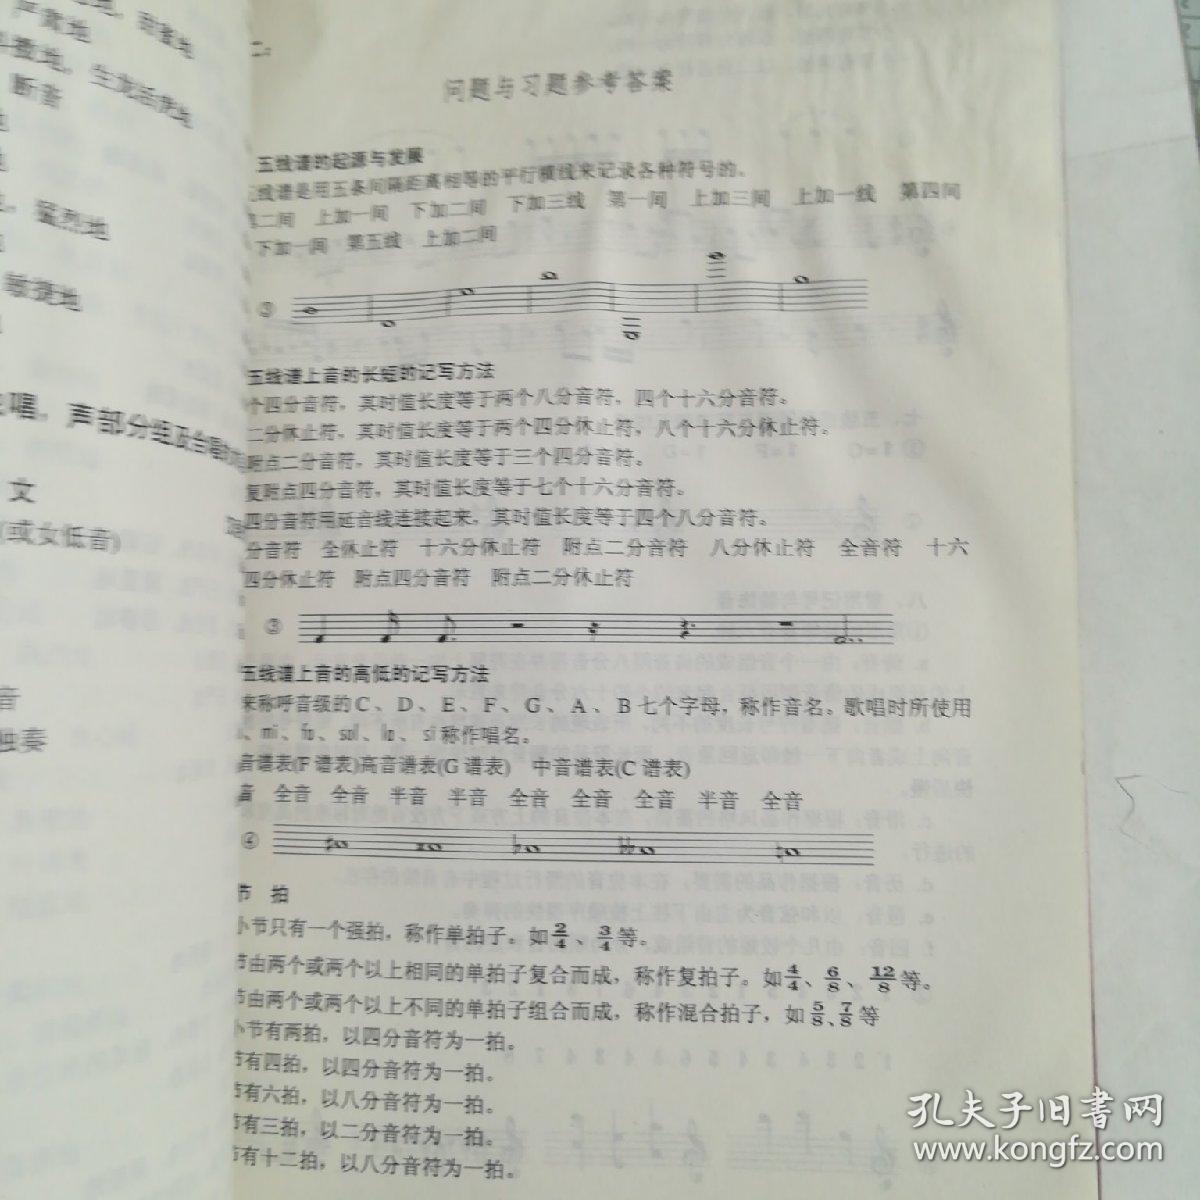 严肃地
生龙活虎地
断音
猛烈地
敏捷地
唱，声部分组及合唱
文
(或女低音)
音
独奏
二：
问题与习题参考答案
五线谱的起源与发展
线谱是用五条间隔距离相等的平行横线来记录各种符号的。
二间 上加一间 下加二间 下加三线 第一间 上加三间 上加一线 第四间
下加一间 第五线 上加二间
③
五线谱上音的长短的记写方法
个四分音符，其时值长度等于两个八分音符，四个十六分音符。
二分休止符，其时值长度等于两个四分休止符，八个十六分休止符。
附点二分音符，其时值长度等于三个四分音符。
复附点四分音符，其时值长度等于七个十六分音符。
四分音符用延音线连接起来，其时值长度等于四个八分音符。
分音符 全休止符 十六分休止符 附点二分音符 八分休止符 全音符 十六
四分休止符 附点四分音符 附点二分休止符
③
五线谱上音的高低的记写方法
来称呼音级的C、D、E、F、G、A、B七个字母，称作音名。歌唱时所使用
、mi、fa、sol、la、si称作唱名。
音谱表(F谱表)高音谱表(G谱表) 中音谱表(C谱表)
音 全音 全音 半音 半音 全音 全音 全音 半音 全音
④
节 拍
小节只有一个强拍，称作单拍子。如2/4、3/4等。
节由两个或两个以上相同的单拍子复合而成，称作复拍子。如4/4、6/8、12/8等。
节由两个或两个以上不同的单拍子组合而成，称作混合拍子，如5/8、7/8等
小节有两拍，以四分音符为一拍。
节有四拍，以四分音符为一拍。
节有六拍，以八分音符为一拍。
节有三拍，以二分音符为一拍。
节有十二拍，以八分音符为一拍。
孔夫子旧书网
www.kongfz.com